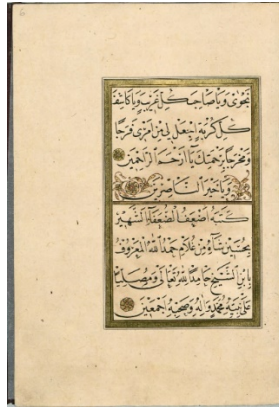 نجوى ويا صاحب كل غريب ويا كاشف
كل كربة اجعل لي من امري فرجا
ومخرجا برحمتك يا ارحم الراحمين
ويا خير الناصرين
كتبه اضعف الضعفاء الشهير
من غلام حمد الله المعروف
بابن الشيخ حامدا لله تعالى ومصليا
على نبيه محمد واله وصحبه اجمعين